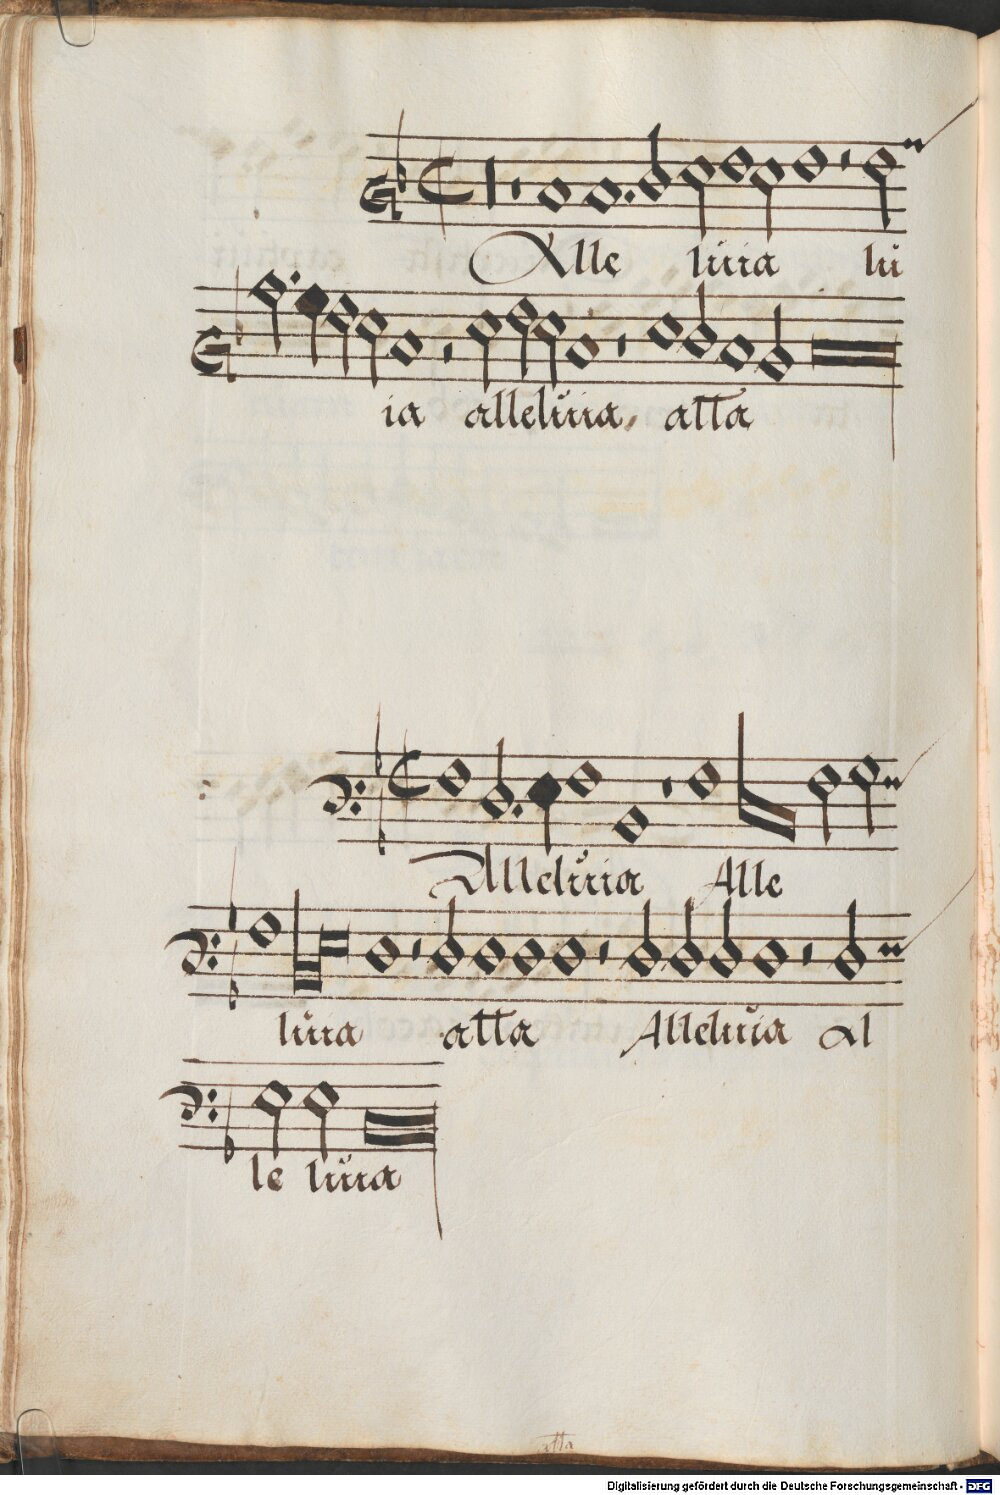 Alle luia lu
ia alleluia, atta
Alleluia Alle
luia atta Alleluia Al
le luia
atta
Digitalisierung gefördert durch die Deutsche Forschungsgemeinschaft - DFG